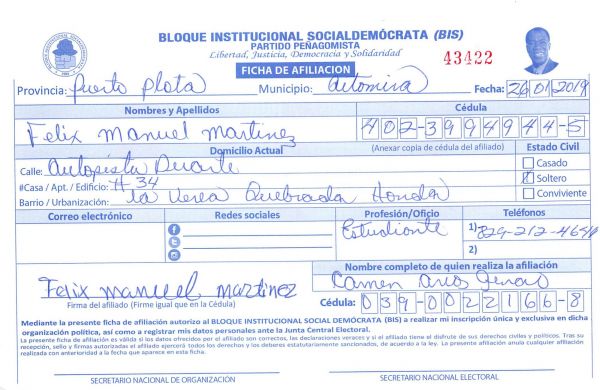 BLOQUE INSTITUCIONAL SOCIALDEMÓCRATA (BIS)
PARTIDO PEÑAGOMISTA
Libertad, Justicia, Democracia y Solidaridad
43422
FICHA DE AFILIACION
Provincia: Puerto Plata Municipio: Altamira Fecha: 26/01/2019
Nombres y Apellidos Cédula
Felix Manuel Martinez 402-3994944-5
Domicilio Actual (Anexar copia de cédula del afiliado) Estado Civil
Calle: Autopista Duarte Casado
#Casa / Apt. / Edificio: # 34 Soltero
Barrio / Urbanización: La Verea Quebrada Honda Conviviente
Correo electrónico Redes sociales Profesión/Oficio Teléfonos
Estudiante 1) 829-212-4654
2)
Nombre completo de quien realiza la afiliación
Felix manuel martinez Carmen
Firma del afiliado (Firme igual que en la Cédula) Cédula: 039-0022166-8
Mediante la presente ficha de afiliación autorizo al BLOQUE INSTITUCIONAL SOCIAL DEMÓCRATA (BIS) a realizar mi inscripción única y exclusiva en dicha
organización política, así como a registrar mis datos personales ante la Junta Central Electoral.
La presente ficha de afiliación es válida si los datos ofrecidos por el afiliado son correctos, las declaraciones veraces y si el afiliado tiene el disfrute de sus derechos civiles y políticos. Tras su
recepción, sello y firmas autorizadas el afiliado ejercerá todos los derechos y los deberes estatutariamente sancionados, de acuerdo a la ley. La presente afiliación anula cualquier afiliación
realizada con anterioridad a la fecha que aparece en esta ficha.
SECRETARIO NACIONAL DE ORGANIZACIÓN SECRETARIO NACIONAL ELECTORAL